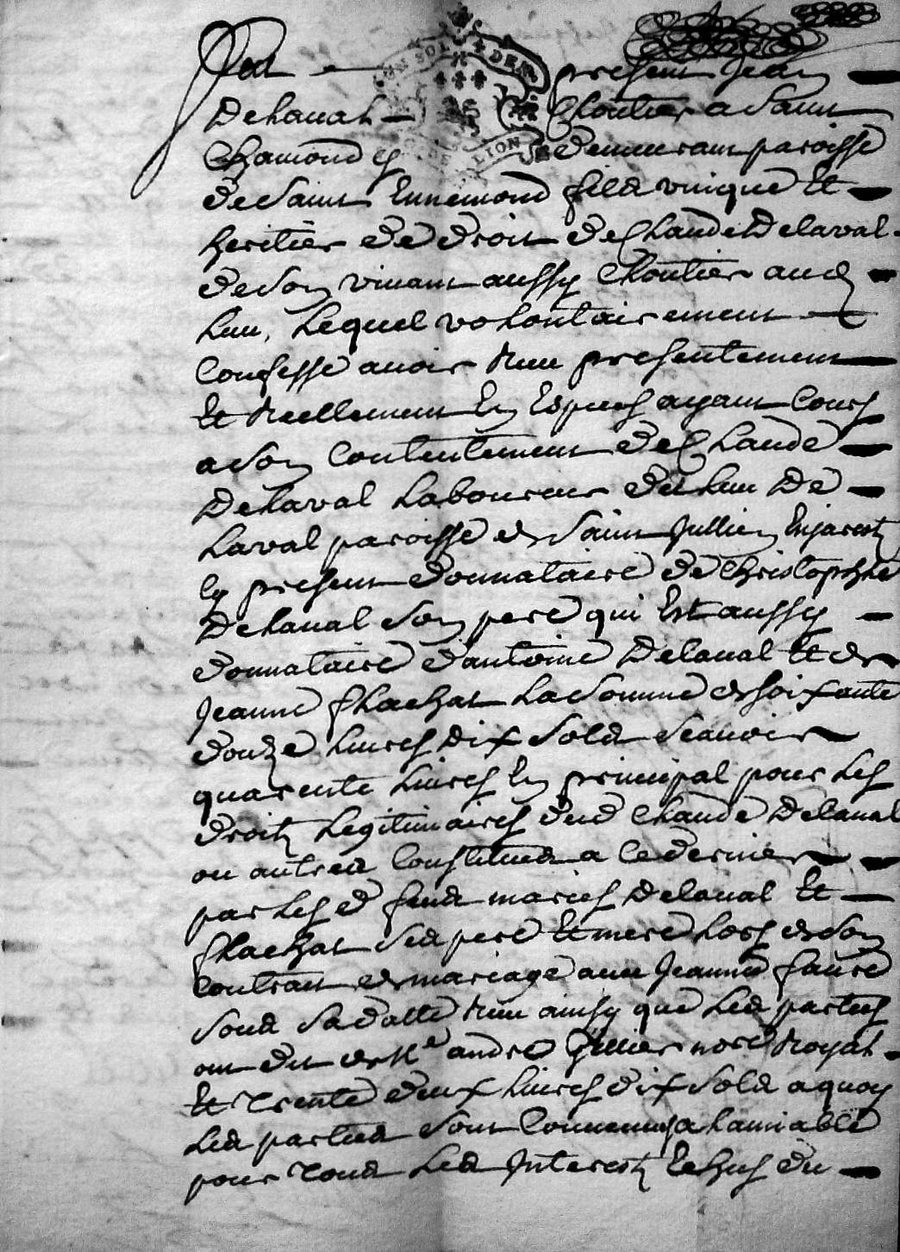 Fut present Jean
Delaval Cloutier a Saint
Chamond y demeurant paroisse
de Saint Ennemond fils unique et
heritier de droit de Claude Delaval
de son vivant aussy Cloutier aud
lieu, lequel volontairement
confesse avoir reeu presentement
et reellement en especes ayant cours
a son contentement de Claude
Delaval laboureur du lieu de
Laval paroisse de Saint Jullien Enjarest
cy present donnataire de Christophle
Delaval son pere qui est aussy
donnataire d'antoine Delaval et de
Jeanne flachat la somme de soixante
douze livres dix sols scavoir
quarente livres en principal pour les
droits legitimaires dud Claude Delaval
ou autres constitués a ce dernier
par les d feus mariés Delaval et
flachat ses pere et mere lors de son
contrait de mariage avec Jeanne faure
sous sa datte reeu ainsy que les parties
ont dit de Me andré Gillier nore Royal
et trente deux livres dix sols a quoy
les parties sont convenus a lamiable
pour tous les interests echus du
CON SOLS 4 DEN
G. DE LION